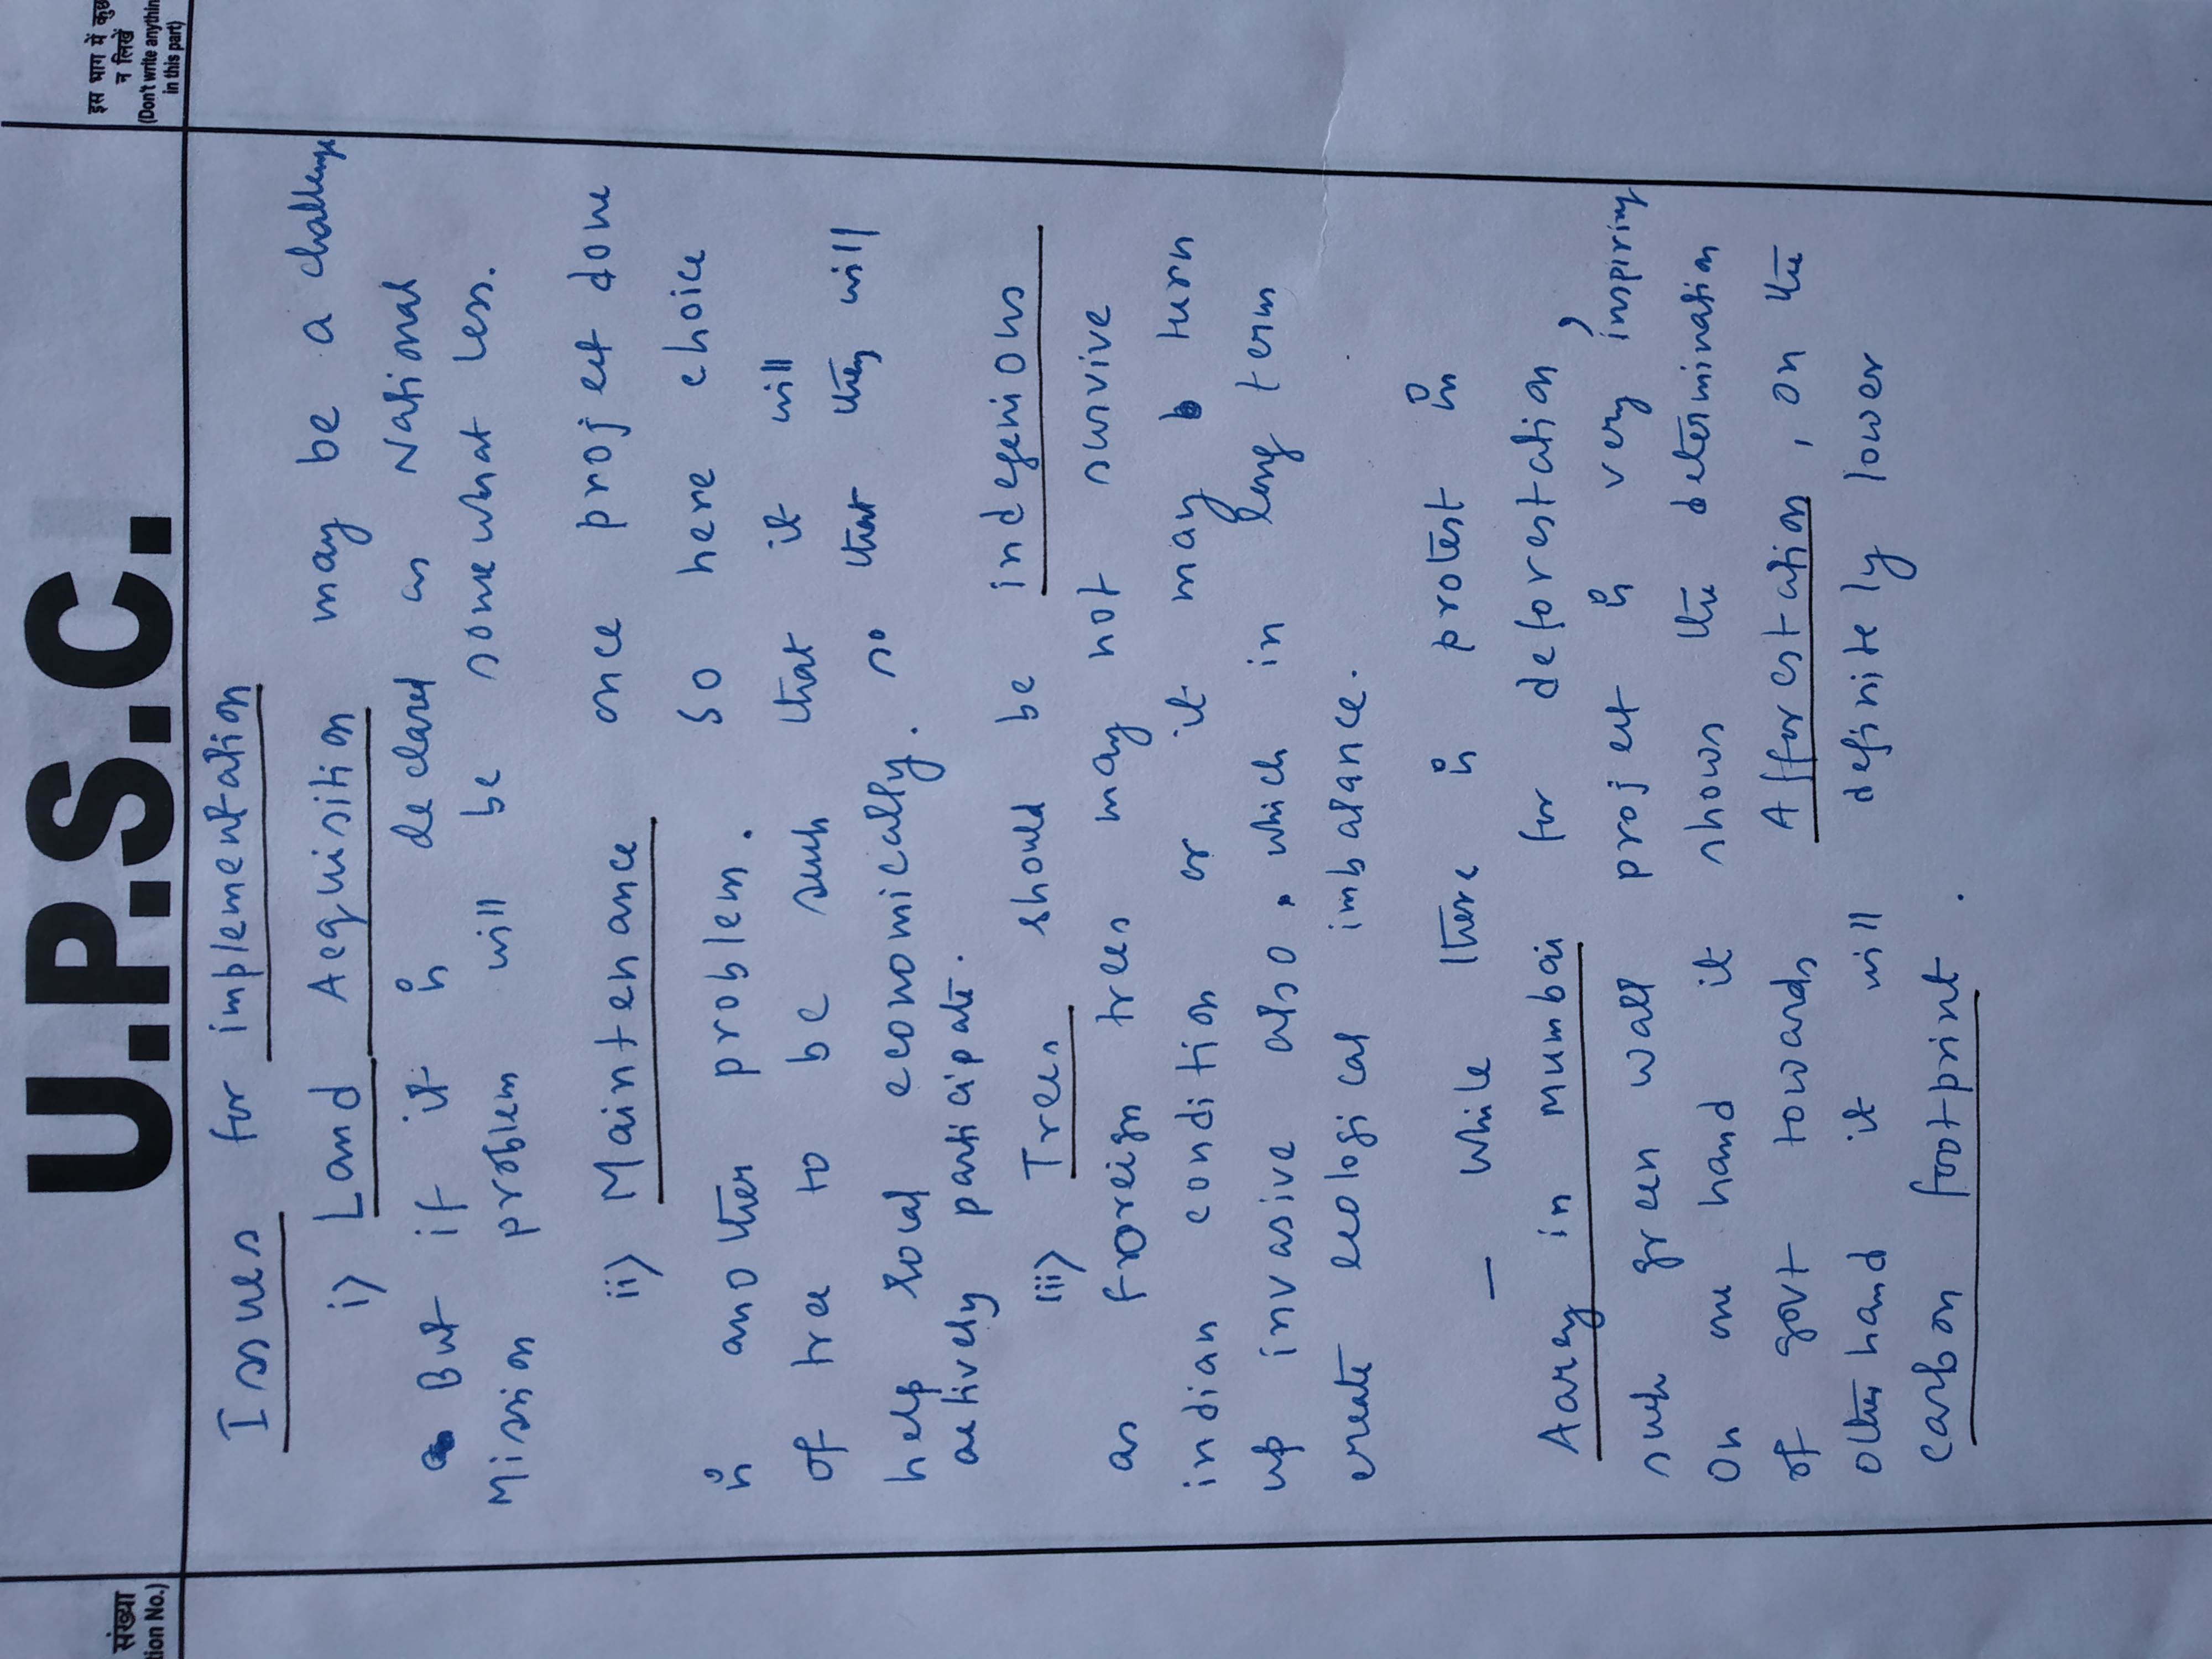 U.P.S.C.
संख्या
tion No.)
इस भाग में कुछ
न लिखें
(Don't write anythin
in this part)
Issues for implementation
i) Land Acquisition may be a challenge
But if it is declared as National
Mission problem will be somewhat less.
ii) Maintenance once project done
is another problem. So here choice
of tree to be such that it will
help local economically. so that they will
actively participate.
iii) Trees should be indegenious
as froreign trees may not survive
indian condition or it may turn
up invasive also. which in long term
create ecological imbalance.
– While there is protest in
Aarey in mumbai for deforestation,
such green wall project is very inspiring
On one hand it shows the determination
of govt towards Afforestation, on the
other hand it will definitely lower
carbon footprint.